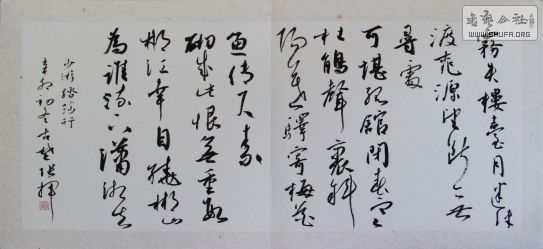 書藝公社
WWW.SHUFA.ORG
霧失樓臺月迷津
渡桃源望斷無
尋處
可堪孤館閉春寒
杜鵑聲裏斜
陽暮驛寄梅花
魚傳尺素
砌成此恨無重數
郴江幸自繞郴山
為誰流下瀟湘去
少游踏莎行
辛卯初冬古楚張輝